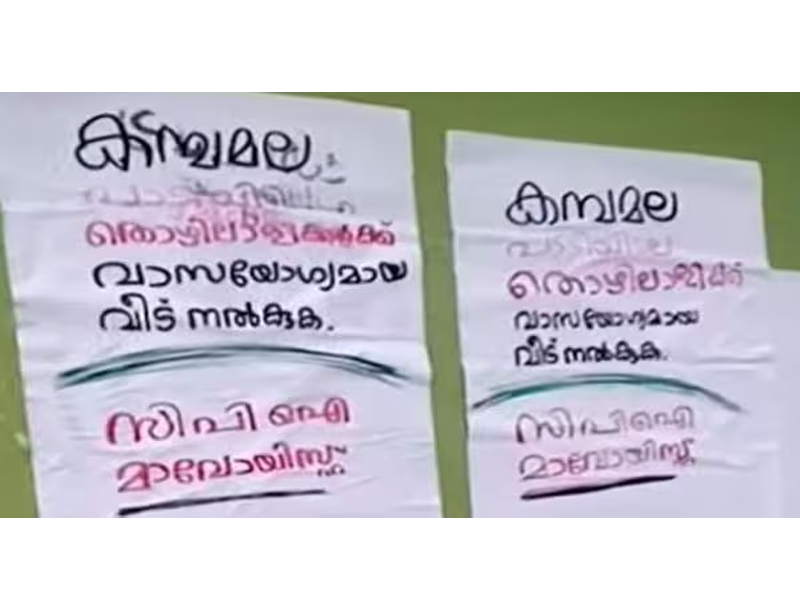 കമ്പമല
തൊഴിലാളികൾക്ക്
വാസയോഗ്യമായ
വീട് നൽകുക.
സിപിഐ
മാവോയിസ്റ്റ്
കമ്പമല
വാസയോഗ്യമായ
വീട് നൽകുക.
സിപിഐ
മാവോയിസ്റ്റ്